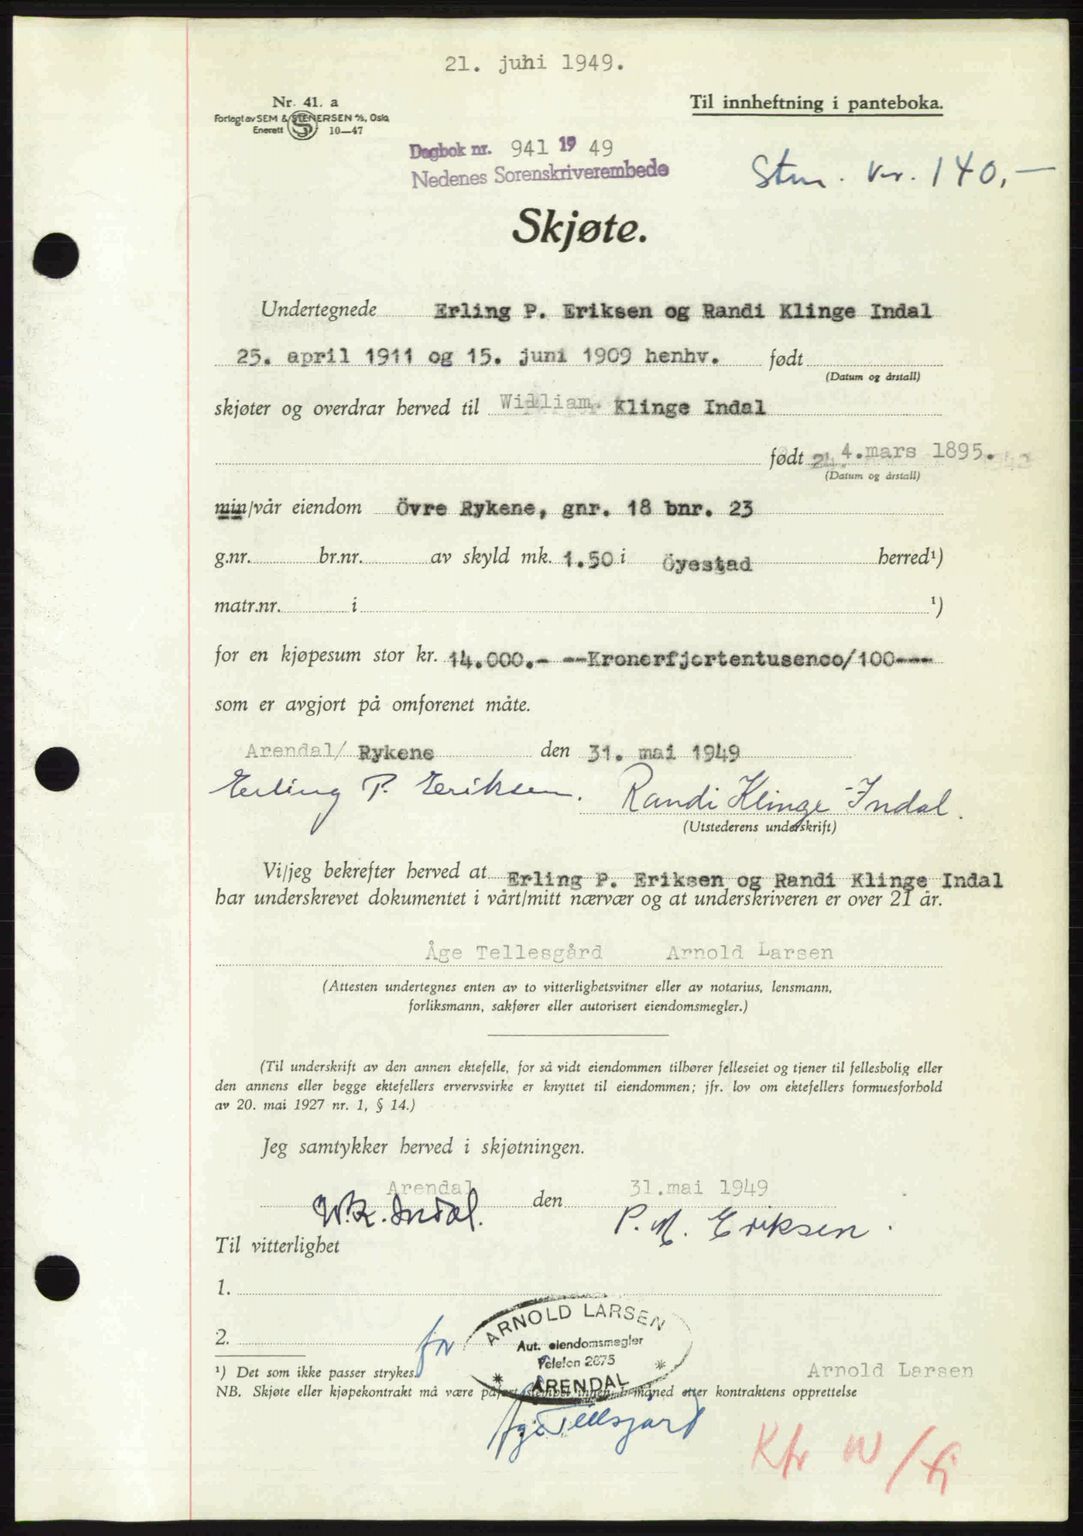 21. juni 1949.
Nr. 41. a
Til innheftning i panteboka.
Forlegt av SEM & STENERSEN A/S, Oslo
Enerett 10—47
Dagbok nr. 941 19 49
Nedenes Sorenskriverembede
Stm. kr. 140,—
Skjøte.
Undertegnede Erling P. Eriksen og Randi Klinge Indal
25. april 1911 og 15. juni 1909 henhv. født
(Datum og årstall)
skjøter og overdrar herved til William Klinge Indal
født 4.mars 1895.
(Datum og årstall)
min/vår eiendom Övre Rykene, gnr. 18 bnr. 23
g.nr. br.nr. av skyld mk. 1.50 i Öyestad herred¹)
matr.nr. i ¹)
for en kjøpesum stor kr. 14.000.- --Kronerfjortentusenoo/100---
som er avgjort på omforenet måte.
Arendal/ Rykene den 31. mai 1949
Erling P. Eriksen. Randi Klinge-Indal.
(Utstederens underskrift)
Vi/jeg bekrefter herved at Erling P. Eriksen og Randi Klinge Indal
har underskrevet dokumentet i vårt/mitt nærvær og at underskriveren er over 21 år.
Åge Tellesgård Arnold Larsen
(Attesten undertegnes enten av to vitterlighetsvitner eller av notarius, lensmann,
forliksmann, sakfører eller autorisert eiendomsmegler.)
(Til underskrift av den annen ektefelle, for så vidt eiendommen tilhører felleseiet og tjener til fellesbolig eller
den annens eller begge ektefellers ervervsvirke er knyttet til eiendommen; jfr. lov om ektefellers formuesforhold
av 20. mai 1927 nr. 1, § 14.)
Jeg samtykker herved i skjøtningen.
Arendal den 31.mai 1949
W.K. Indal. P. M. Eriksen.
Til vitterlighet
1.
2.
for
ARNOLD LARSEN
Aut. eiendomsmegler
Telefon 2675
* ARENDAL *
¹) Det som ikke passer strykes.
Arnold Larsen
NB. Skjøte eller kjøpekontrakt må være påført stempel innen 1 måned etter kontraktens opprettelse
Åge Tellesgård
Kfr